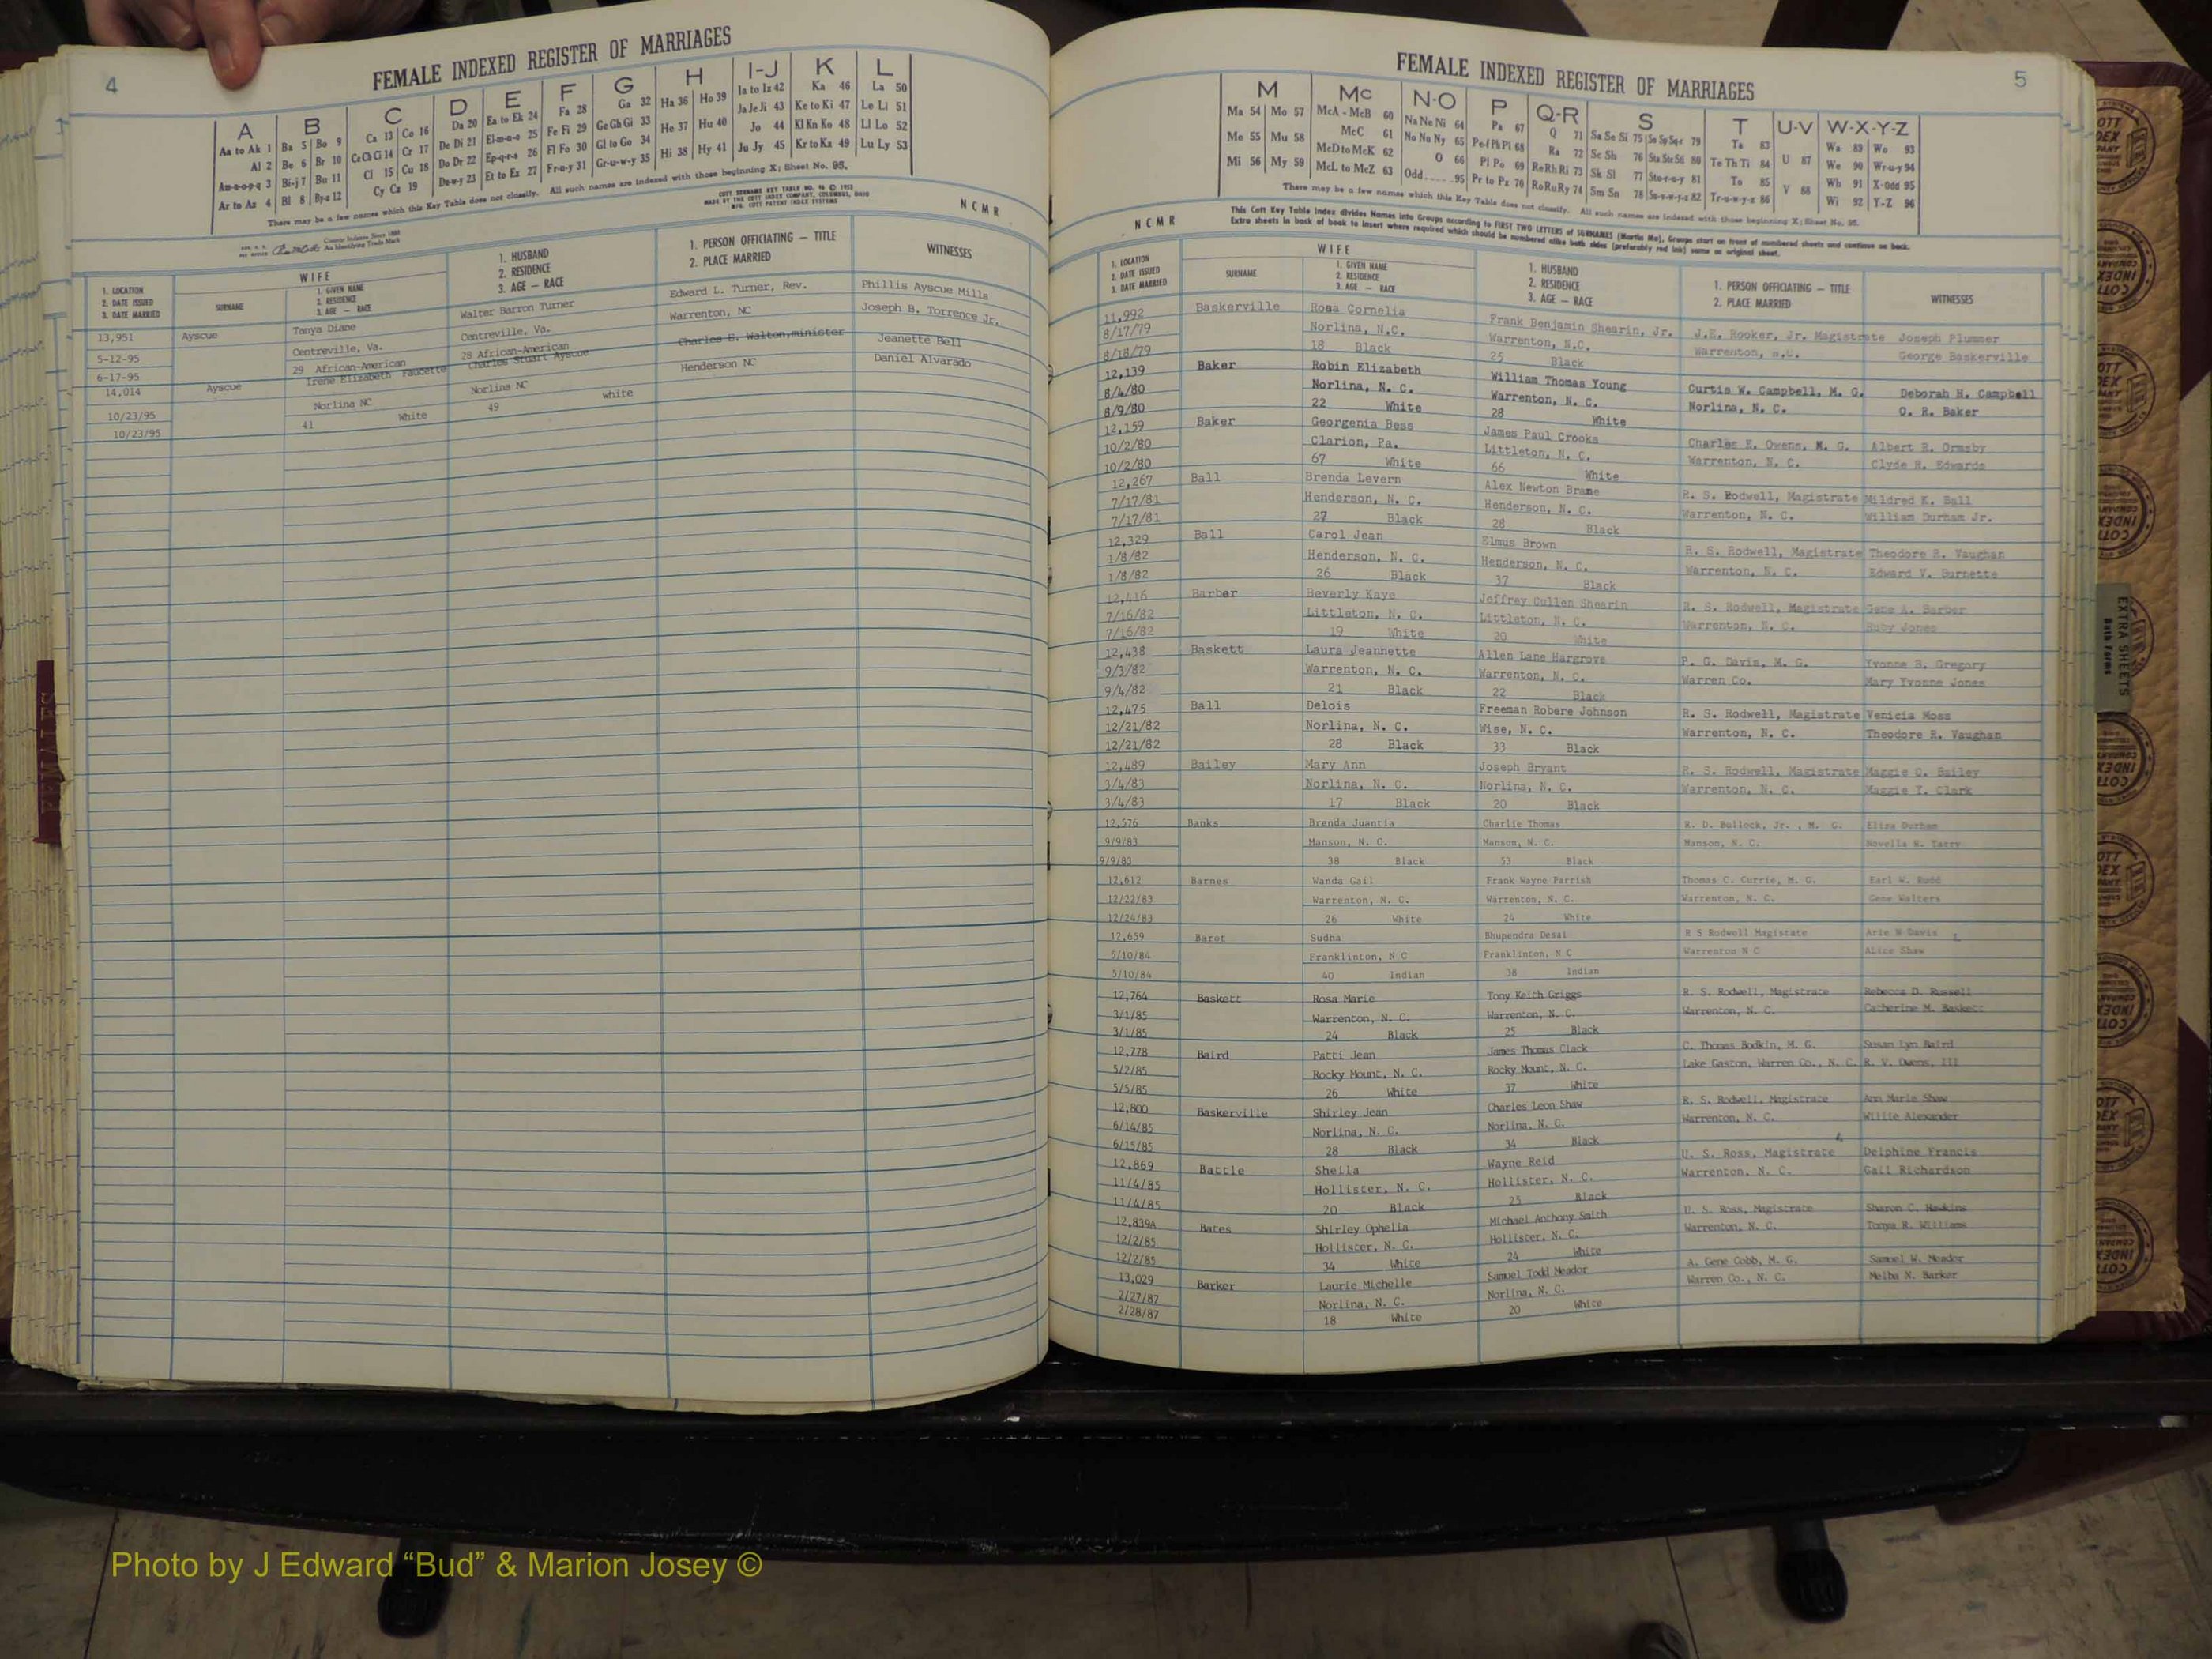 4
FEMALE INDEXED REGISTER OF MARRIAGES
A B C D E F G H I-J K L
Aa to Ak 1 Ba 5 Bo 9 Ca 13 Co 16 Da 20 Ea to Ek 24 Fa 28 Ga 32 Ha 36 Ho 39 Ia to Iz 42 Ka 46 La 50
Al 2 Be 6 Br 10 Ce Ch Ci 14 Cr 17 De Di 21 El-m-n-o 25 Fe Fi 29 Ge Gh Gi 33 He 37 Hu 40 Ja Je Ji 43 Ke to Ki 47 Le Li 51
Am-n-o-p-q 3 Bi-j 7 Bu 11 Cl 15 Cu 18 Do Dr 22 Ep-q-r-s 26 Fl Fo 30 Gl to Go 34 Hi 38 Hy 41 Jo 44 Kl Kn Ko 48 Ll Lo 52
Ar to Az 4 Bl 8 By-z 12 Cy Cz 19 Du-w-y 23 Et to Ez 27 Fr-u-y 31 Gr-u-w-y 35 Ju Jy 45 Kr to Kz 49 Lu Ly 53
There may be a few names which this Key Table does not classify. All such names are indexed with those beginning X; Sheet No. 95.
COTT SURNAME KEY TABLE NO. 96 © 1953
MADE BY THE COTT INDEX COMPANY, COLUMBUS, OHIO
MFG. COTT PATENT INDEX SYSTEMS
NCMR
County Indexes Since 1888
An Identifying Trade Mark
1. LOCATION
2. DATE ISSUED
3. DATE MARRIED
WIFE
SURNAME
1. GIVEN NAME
2. RESIDENCE
3. AGE — RACE
1. HUSBAND
2. RESIDENCE
3. AGE — RACE
1. PERSON OFFICIATING — TITLE
2. PLACE MARRIED
WITNESSES
13,951 Ayscue Tanya Diane Walter Barron Turner Edward L. Turner, Rev. Phillis Ayscue Mills
5-12-95 Centreville, Va. Centreville, Va. Warrenton, NC Joseph B. Torrence Jr.
6-17-95 29 African-American 28 African-American
14,014 Ayscue Irene Elizabeth Faucette Charles Stuart Ayscue Charles E. Walton,minister Jeanette Bell
10/23/95 Norlina NC Norlina NC Henderson NC Daniel Alvarado
10/23/95 41 White 49 white
5
FEMALE INDEXED REGISTER OF MARRIAGES
M Mc N-O P Q-R S T U-V W-X-Y-Z
Ma 54 Mo 57 McA - McB 60 Na Ne Ni 64 Pa 67 Q 71 Sa Se Si 75 So Sp Sq-r 79 Ta 83 U 87 Wa 89 Wo 93
Me 55 Mu 58 McC 61 No Nu Ny 65 Pe-f Ph Pi 68 Ra 72 Sc Sh 76 Sta Ste Sti 80 Te Th Ti 84 V 88 We 90 Wr-u-y 94
Mi 56 My 59 McD to McK 62 O 66 Pl Po 69 Re Rh Ri 73 Sk Sl 77 Sto-r-u-y 81 To 85 Wh 91 X-Odd 95
McL to McZ 63 Odd 95 Pr to Pz 70 Ro Ru Ry 74 Sm Sn 78 Su-v-w-y-z 82 Tr-u-w-y-z 86 Wi 92 Y-Z 96
There may be a few names which this Key Table does not classify. All such names are indexed with those beginning X; Sheet No. 95.
NCMR
This Cott Key Table Index divides Names into Groups according to FIRST TWO LETTERS of SURNAMES (Martin Ma), Groups start on front of numbered sheets and continue on back.
Extra sheets in back of book to insert where required which should be numbered alike both sides (preferably red ink) same as original sheet.
1. LOCATION
2. DATE ISSUED
3. DATE MARRIED
WIFE
SURNAME
1. GIVEN NAME
2. RESIDENCE
3. AGE — RACE
1. HUSBAND
2. RESIDENCE
3. AGE — RACE
1. PERSON OFFICIATING — TITLE
2. PLACE MARRIED
WITNESSES
11,992 Baskerville Rosa Cornelia Frank Benjamin Shearin, Jr. J.E. Rooker, Jr. Magistrate Joseph Plummer
8/17/79 Norlina, N.C. Warrenton, N.C. Warrenton, N.C. George Baskerville
8/18/79 18 Black 25 Black
12,139 Baker Robin Elizabeth William Thomas Young Curtis W. Campbell, M. G. Deborah H. Campbell
8/4/80 Norlina, N. C. Warrenton, N. C. Norlina, N. C. O. R. Baker
8/9/80 22 White 28 White
12,159 Baker Georgenia Bess James Paul Crooks Charles E. Owens, M. G. Albert E. Ormsby
10/2/80 Clarion, Pa. Littleton, N. C. Warrenton, N. C. Clyde R. Edwards
10/2/80 67 White 66 White
12,267 Ball Brenda Levern Alex Newton Brame R. S. Rodwell, Magistrate Mildred K. Ball
7/17/81 Henderson, N. C. Henderson, N. C. Warrenton, N. C. William Durham Jr.
7/17/81 27 Black 28 Black
12,329 Ball Carol Jean Elmus Brown R. S. Rodwell, Magistrate Theodore R. Vaughan
1/8/82 Henderson, N. C. Henderson, N. C. Warrenton, N. C. Edward V. Burnette
1/8/82 26 Black 37 Black
12,416 Barber Beverly Kaye Jeffrey Cullen Shearin R. S. Rodwell, Magistrate Gene A. Barber
7/16/82 Littleton, N. C. Littleton, N. C. Warrenton, N. C. Ruby Jones
7/16/82 19 White 20 White
12,438 Baskett Laura Jeannette Allen Lane Hargrove P. G. Davis, M. G. Yvonne B. Gregory
9/3/82 Warrenton, N. C. Warrenton, N. C. Warren Co. Mary Yvonne Jones
9/4/82 21 Black 22 Black
12,475 Ball Delois Freeman Robere Johnson R. S. Rodwell, Magistrate Venicia Moss
12/21/82 Norlina, N. C. Wise, N. C. Warrenton, N. C. Theodore R. Vaughan
12/21/82 28 Black 33 Black
12,489 Bailey Mary Ann Joseph Bryant R. S. Rodwell, Magistrate Maggie C. Bailey
3/4/83 Norlina, N. C. Norlina, N. C. Warrenton, N. C. Maggie Y. Clark
3/4/83 17 Black 20 Black
12,576 Banks Brenda Juantia Charlie Thomas R. D. Bullock, Jr., M. G. Eliza Durham
9/9/83 Manson, N. C. Manson, N. C. Manson, N. C. Novella R. Terry
9/9/83 38 Black 53 Black
12,612 Barnes Wanda Gail Frank Wayne Parrish Thomas C. Currie, M. G. Earl W. Rudd
12/22/83 Warrenton, N. C. Warrenton, N. C. Warrenton, N. C. Gene Walters
12/24/83 26 White 24 White
12,659 Barot Sudha Bhupendra Desai R S Rodwell Magistate Arie N Davis
5/10/84 Franklinton, N C Franklinton, N C Warrenton N C Alice Shaw
5/10/84 40 Indian 38 Indian
12,764 Baskett Rosa Marie Tony Keith Griggs R. S. Rodwell, Magistrate Rebecca D. Russell
3/1/85 Warrenton, N. C. Warrenton, N. C. Warrenton, N. C. Catherine M. Baskett
3/1/85 24 Black 25 Black
12,778 Baird Patti Jean James Thomas Clack C. Thomas Bodkin, M. G. Susan Lyn Baird
5/2/85 Rocky Mount, N. C. Rocky Mount, N. C. Lake Gaston, Warren Co., N. C. R. V. Owens, III
5/5/85 26 White 37 White
12,800 Baskerville Shirley Jean Charles Leon Shaw R. S. Rodwell, Magistrate Ann Marie Shaw
6/14/85 Norlina, N. C. Norlina, N. C. Warrenton, N. C. Willie Alexander
6/15/85 28 Black 34 Black
12,869 Battle Sheila Wayne Reid U. S. Ross, Magistrate Delphine Francis
11/4/85 Hollister, N. C. Hollister, N. C. Warrenton, N. C. Gail Richardson
11/4/85 20 Black 25 Black
12,839A Bates Shirley Ophelia Michael Anthony Smith U. S. Ross, Magistrate Sharon C. Hawkins
12/2/85 Hollister, N. C. Hollister, N. C. Warrenton, N. C. Tonya R. Williams
12/2/85 34 White 24 White
13,029 Barker Laurie Michelle Samuel Todd Meador A. Gene Cobb, M. G. Samuel W. Meador
2/27/87 Norlina, N. C. Norlina, N. C. Warren Co., N. C. Melba N. Barker
2/28/87 18 White 20 White
EXTRA SHEETS
Both Forms
FEMALES
Photo by J Edward “Bud” & Marion Josey ©